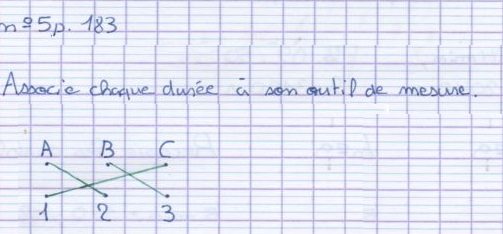 n°5 p. 183
Associe chaque durée à son outil de mesure.
A B C
1 2 3